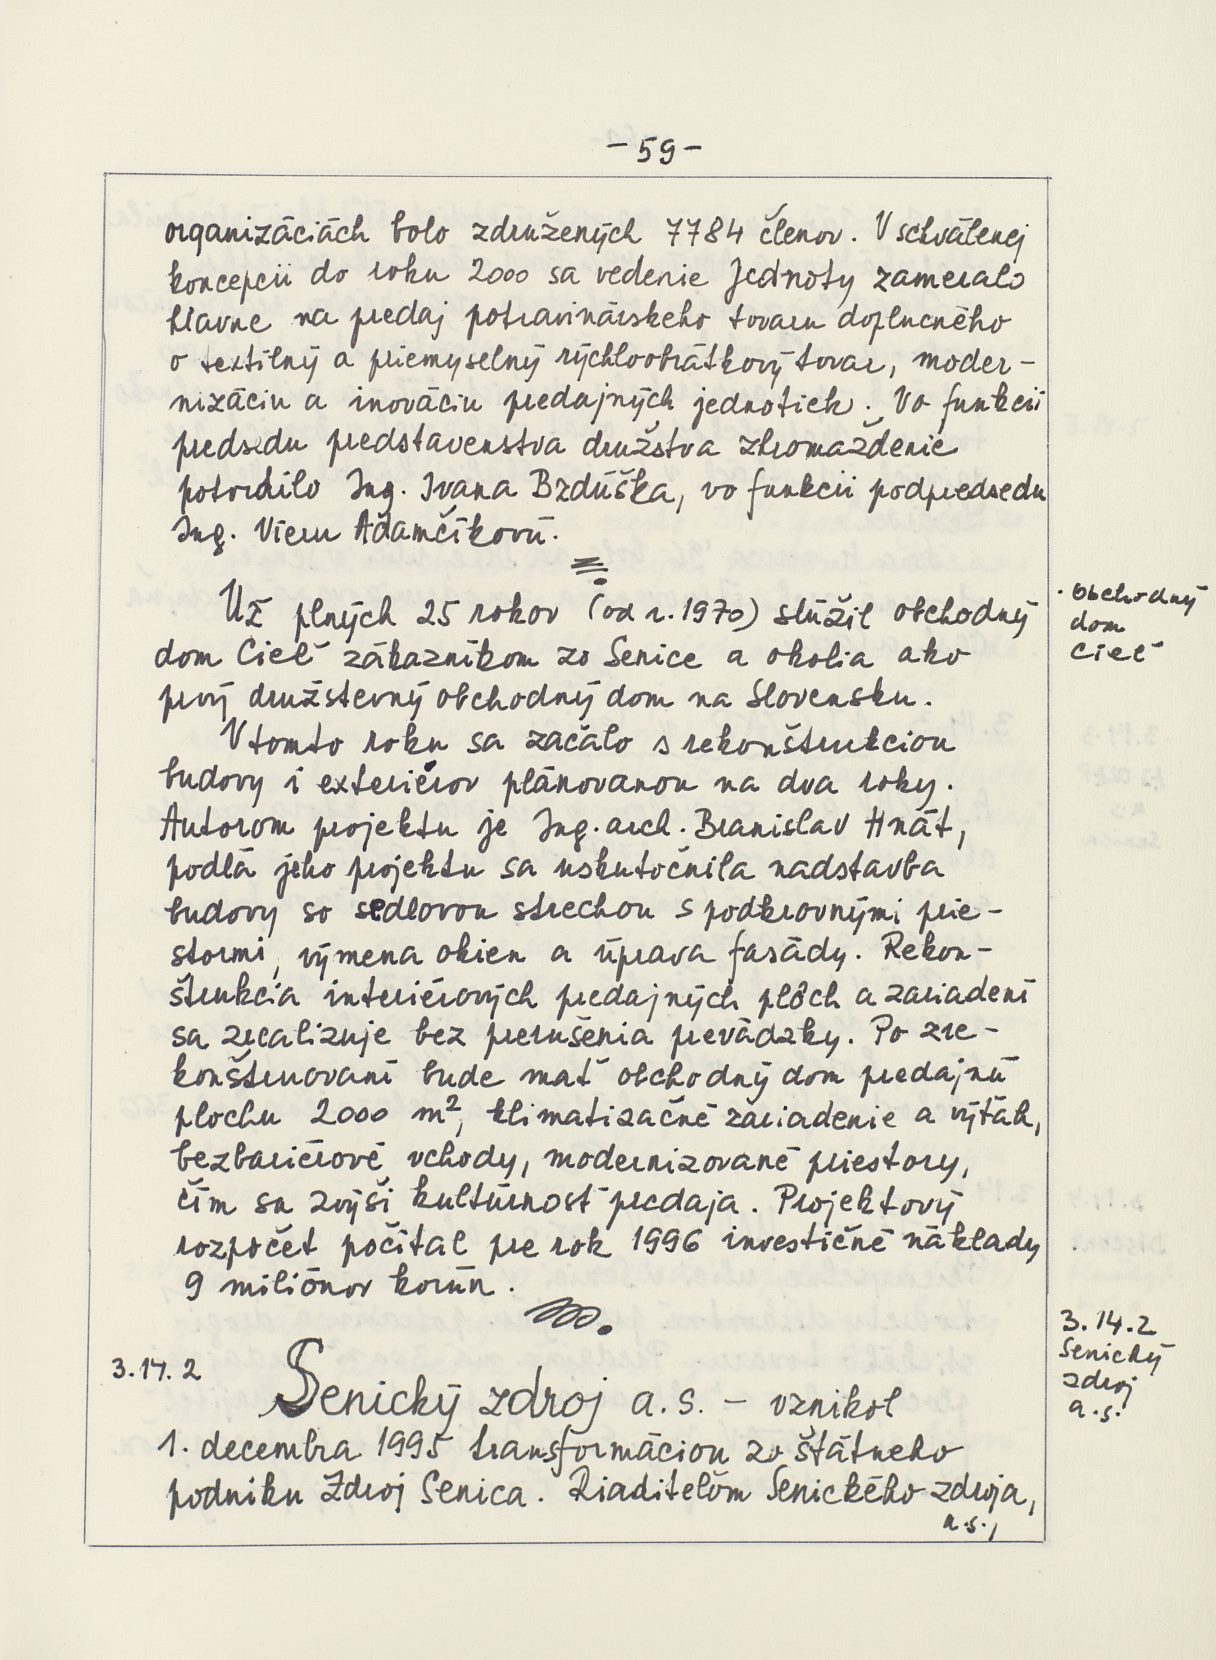 - 59 -
organizáciách bolo združených 7784 členov. V schválenej
koncepcii do roku 2000 sa vedenie Jednoty zameralo
hlavne na predaj potravinárskeho tovaru doplneného
o textilný a priemyselný rýchloobrátkový tovar, moder-
nizáciu a inováciu predajných jednotiek. Vo funkcii
predsedu predstavenstva družstva zhromaždenie
potvrdilo Ing. Ivana Bzdúška, vo funkcii podpredsedu
Ing. Vieru Adamčíkovú.
Už plných 25 rokov (od r. 1970) slúžil obchodný
dom Cieľ zákazníkom zo Senice a okolia ako
prvý družstevný obchodný dom na Slovensku.
V tomto roku sa začalo s rekonštrukciou
budovy i exteriérov plánovanou na dva roky.
Autorom projektu je Ing. arch. Branislav Hnát,
podľa jeho projektu sa uskutočnila nadstavba
budovy so sedlovou strechou s podkrovnými prie-
stormi, výmena okien a úprava fasády. Rekon-
štrukcia interiérových predajných plôch a zariadení
sa zrealizuje bez prerušenia prevádzky. Po zre-
konštruovaní bude mať obchodný dom predajnú
plochu 2000 m², klimatizačné zariadenie a výťah,
bezbariérové vchody, modernizované priestory,
čím sa zvýši kultúrnosť predaja. Projektový
rozpočet počítal pre rok 1996 investičné náklady
9 miliónov korún.
3.14.2
Senický zdroj a.s. - vznikol
1. decembra 1995 transformáciou zo štátneho
podniku Zdroj Senica. Riaditeľom Senického zdroja,
a.s.,
Obchodný
dom
Cieľ
3.14.2
Senický
zdroj
a.s.